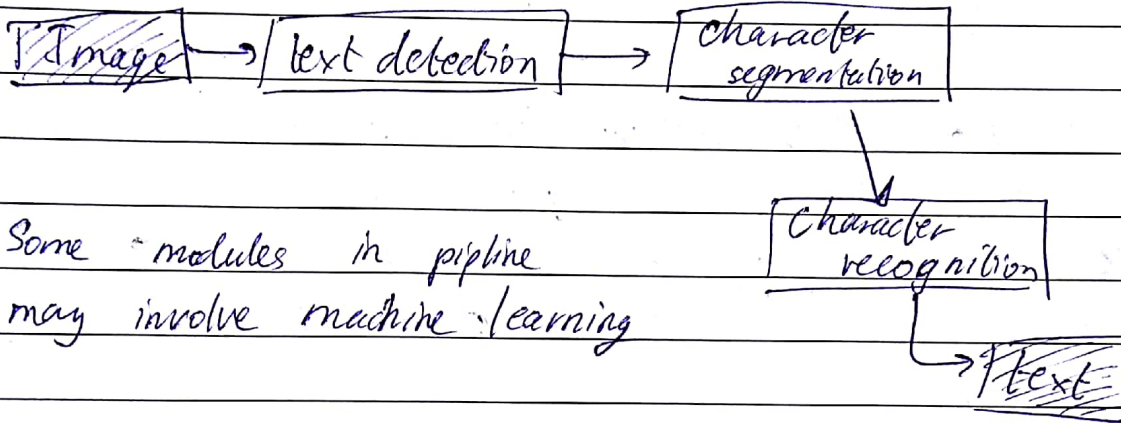 Image
text detection
character
segmentation
Character
recognition
text
Some modules in pipline
may involve machine learning